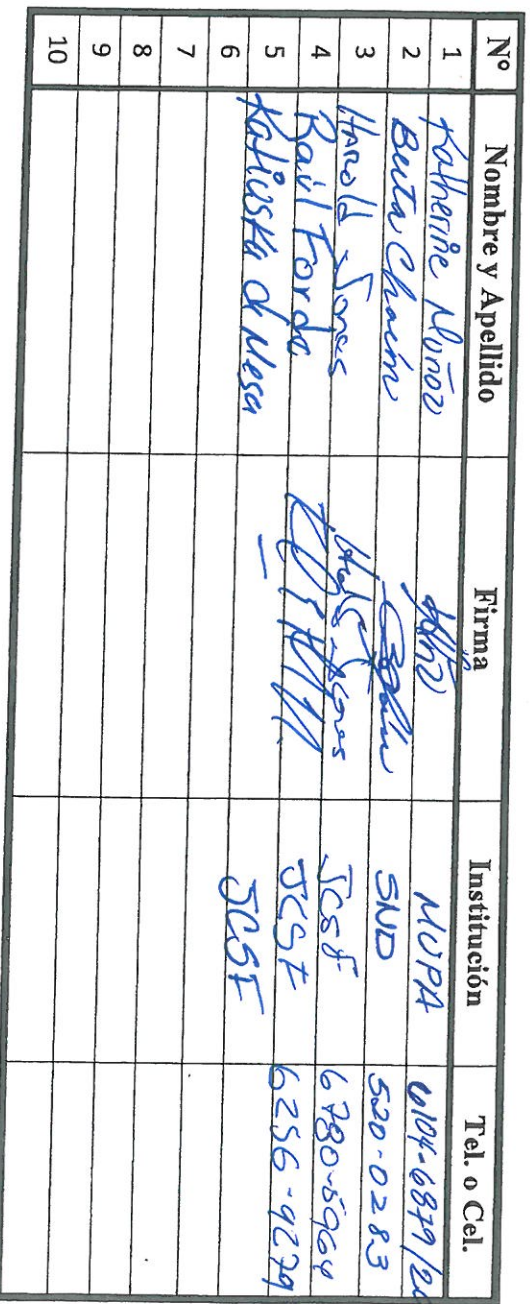 Nº Nombre y Apellido Firma Institución Tel. o Cel.
1 Katherine Muñoz MUPA 6104-6879/20
2 Berta Chacín SND 520-0283
3 Harold Jones Harold Jones JCSF 6780-5964
4 Raúl Forde JCSF 6256-9279
5 Katiuska de Mesa JCSF
6
7
8
9
10